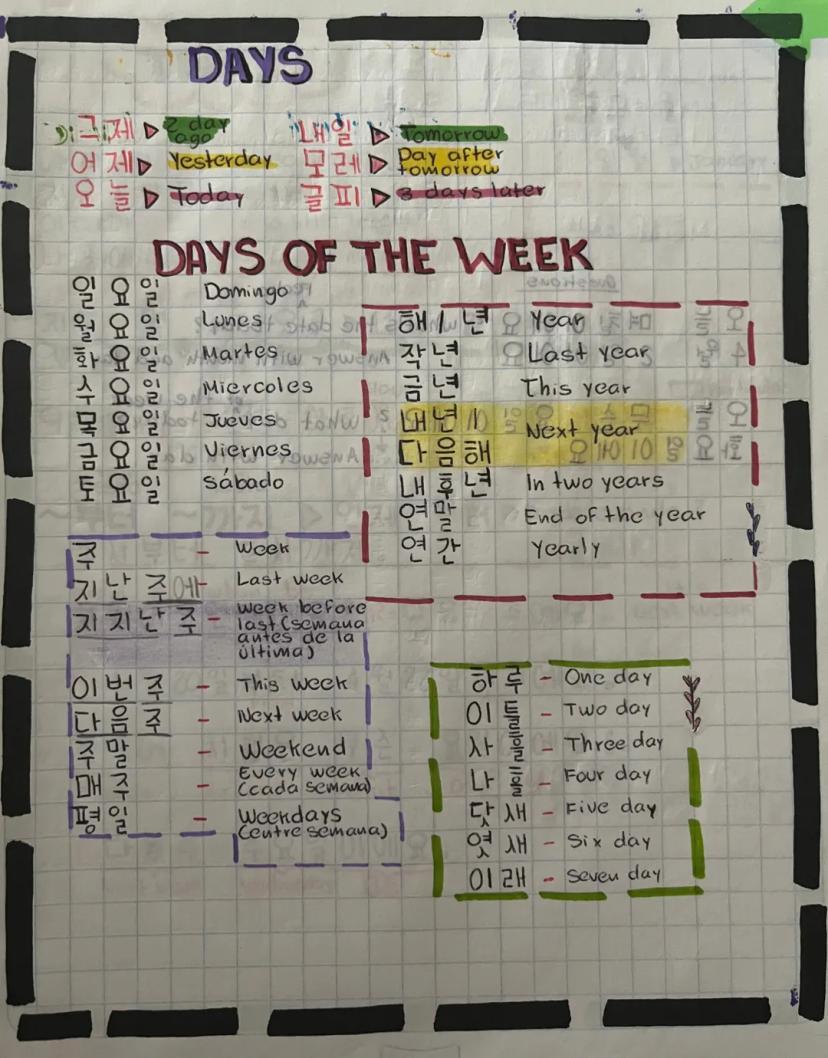 DAYS
그제 ▷ 2 day ago
내일 ▷ Tomorrow
어제 ▷ Yesterday
모레 ▷ Day after tomorrow
오늘 ▷ Today
글피 ▷ 3 days later
DAYS OF THE WEEK
일요일 Domingo
월요일 Lunes
화요일 Martes
수요일 Miercoles
목요일 Jueves
금요일 Viernes
토요일 Sábado
해/년 Year
작년 Last year
금년 This year
내년//
다음해 Next year
내후년 In two years
연말 End of the year
연간 Yearly
주 - Week
지난 주에 - Last week
지지난 주 - week before
last (semana
antes de la
última)
이번 주 - This week
다음 주 - Next week
주말 - Weekend
매주 - Every week
(cada semana)
평일 - Weekdays
(entre semana)
하루 - One day
이틀 - Two day
사흘 - Three day
나흘 - Four day
닷새 - Five day
엿새 - Six day
이래 - Seven day